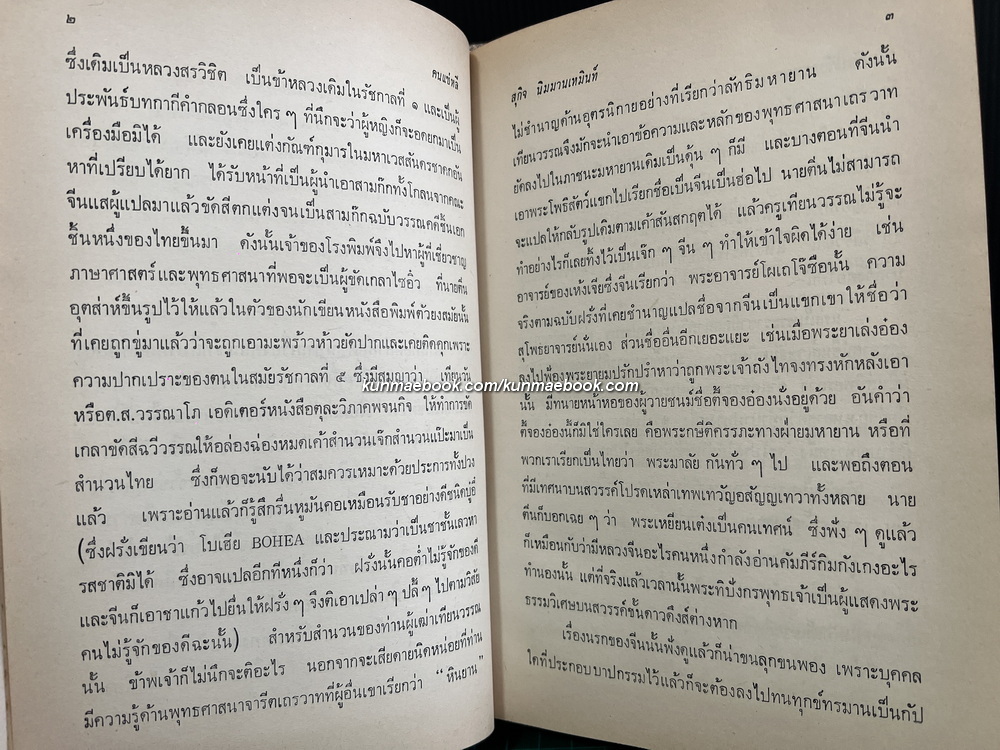 ๒
คนแซ่หลี
ซึ่งเดิมเป็นหลวงสรวิชิต เป็นข้าหลวงเดิมในรัชกาลที่ ๑ และเป็นผู้
ประพันธ์บทกากีคำกลอนซึ่งใคร ๆ ที่นึกจะว่าผู้หญิงก็จะอดยกมาเป็น
เครื่องมือมิได้ และยังเคยแต่งกัณฑ์กุมารในมหาเวสสันดรชาดกอัน
หาที่เปรียบได้ยาก ได้รับหน้าที่เป็นผู้นำเอาสามก๊กทั้งโกลนจากคณะ
จีนแสผู้แปลมาแล้วขัดสีตกแต่งจนเป็นสามก๊กฉบับวรรณคดีชั้นเอก
ชิ้นหนึ่งของไทยขึ้นมา ดังนั้นเจ้าของโรงพิมพ์จึงไปหาผู้ที่เชี่ยวชาญ
ภาษาศาสตร์และพุทธศาสนาที่พอจะเป็นผู้ขัดเกลาไซอิ๋ว ที่นายตีน
อุตส่าห์ขึ้นรูปไว้ให้แล้วในตัวของนักเขียนหนังสือพิมพ์ตัวยงสมัยนั้น
ที่เคยถูกขู่มาแล้วว่าจะถูกเอามะพร้าวห้าวยัดปากและเคยติดคุกเพราะ
ความปากเปราะของตนในสมัยรัชกาลที่ ๕ ซึ่งมีสมญาว่า เทียนวัน
หรือต.ส.วรรณาโภ เอดิเตอร์หนังสือตุละวิภาคพจนกิจ ให้ทำการขัด
เกลาขัดสีฉวีวรรณให้อล่องฉ่องหมดเค้าสำนวนเจ๊กสำนวนแป๊ะมาเป็น
สำนวนไทย ซึ่งก็พอจะนับได้ว่าสมควรเหมาะด้วยประการทั้งปวง
แล้ว เพราะอ่านแล้วก็รู้สึกรื่นหูมันคอเหมือนรับชาอย่างดีชนิดบู่อี๋
(ซึ่งฝรั่งเขียนว่า โบเฮีย BOHEA และประณามว่าเป็นชาชั้นเลวหา
รสชาติมิได้ ซึ่งอาจแปลอีกทีหนึ่งก็ว่า ฝรั่งนั้นคอต่ำไม่รู้จักของดี
และจีนก็เอาชาแก้วไปยื่นให้ฝรั่ง ๆ จึงติเอาเปล่า ๆ ปลี้ ๆ ไปตามวิสัย
คนไม่รู้จักของดีฉะนั้น) สำหรับสำนวนของท่านผู้เฒ่าเทียนวรรณ
นั้น ข้าพเจ้าก็ไม่นึกจะติอะไร นอกจากจะเสียดายนิดหน่อยที่ท่าน
มีความรู้ด้านพุทธศาสนาจารีตเถรวาทที่ผู้อื่นเขาเรียกว่า "หินยาน"
๓
สุกิจ นิมมานเหมินท์
ไม่ชำนาญด้านอุตรนิกายอย่างที่เรียกว่าลัทธิมหายาน ดังนั้น
เทียนวรรณจึงมักจะนำเอาข้อความและหลักของพุทธศาสนาเถรวาท
ยัดลงไปในภาชนะมหายานเดิมเป็นดุ้น ๆ ก็มี และบางตอนที่จีนนำ
เอาพระโพธิสัตว์แขกไปเรียกชื่อเป็นจีนเป็นฮ่อไป นายตีนไม่สามารถ
จะแปลให้กลับรูปเดิมตามเค้าสันสกฤตได้ แล้วครูเทียนวรรณไม่รู้จะ
ทำอย่างไรก็เลยทิ้งไว้เป็นเจ๊ก ๆ จีน ๆ ทำให้เข้าใจผิดได้ง่าย เช่น
อาจารย์ของเห้งเจียซึ่งจีนเรียกว่า พระอาจารย์โผเถโจ๊ซือนั้น ความ
จริงตามฉบับฝรั่งที่เคยชำนาญแปลชื่อจากจีนเป็นแขกเขาให้ชื่อว่า
สุโพธยาจารย์นั่นเอง ส่วนชื่ออื่นอีกเยอะแยะ เช่นเมื่อพระยาเล่งอ๋อง
ลงไปฟ้องพระยายมปรักปรำหาว่าถูกพระเจ้าถังไทจงทรงหักหลังเอา
นั้น มีทนายหน้าหอของผู้วายชนม์ชื่อตี้จองอ๋องนั่งอยู่ด้วย อันคำว่า
ตี้จองอ๋องนี้ก็มิใช่ใครเลย คือพระกษิติครรภะทางฝ่ายมหายาน หรือที่
พวกเราเรียกเป็นไทยว่า พระมาลัย กันทั่ว ๆ ไป และพอถึงตอน
ที่มีเทศนาบนสวรรค์โปรดเหล่าเทพเทวัญอสัญญเทวาทั้งหลาย นาย
ตีนก็บอกเฉย ๆ ว่า พระเหยียนเต๋งเป็นคนเทศน์ ซึ่งฟัง ๆ ดูแล้ว
ก็เหมือนกับว่ามีหลวงจีนอะไรคนหนึ่งกำลังอ่านคัมภีร์กิมกังเกงอะไร
ทำนองนั้น แต่ที่จริงแล้วเวลานั้นพระทีบังกรพุทธเจ้าเป็นผู้แสดงพระ
ธรรมวิเศษบนสวรรค์ชั้นดาวดึงส์ต่างหาก
เรื่องนรกของจีนนั้นฟังดูแล้วก็น่าขนลุกขนพอง เพราะบุคคล
ใดที่ประกอบบาปกรรมไว้แล้วก็จะต้องลงไปทนทุกข์ทรมานเป็นกัป
www.kunmaebook.com/kunmaebook.com